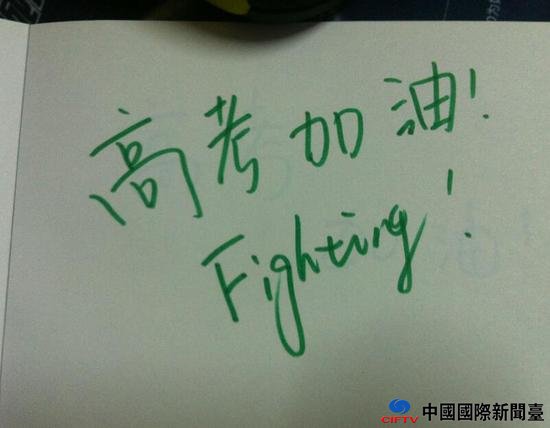 高考加油!
Fighting!
CIFTV 中國國際新聞臺